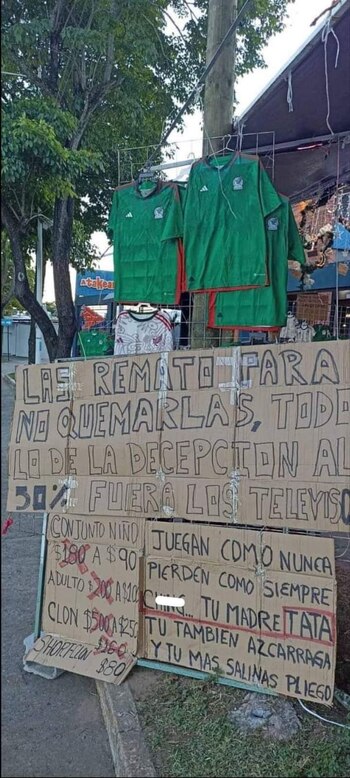 Atakea
LAS REMATO PARA
NO QUEMARLAS, TODO
LO DE LA DECEPCION AL
50% FUERA LOS TELEVISO
CONJUNTO NIÑO
$180 A $90
ADULTO $200 A $100
CLON $500 A $250
SHORT CLON $160
$80
JUEGAN COMO NUNCA
PIERDEN COMO SIEMPRE
TU MADRE TATA
TU TAMBIEN AZCARRAGA
Y TU MAS SALINAS PLIEGO